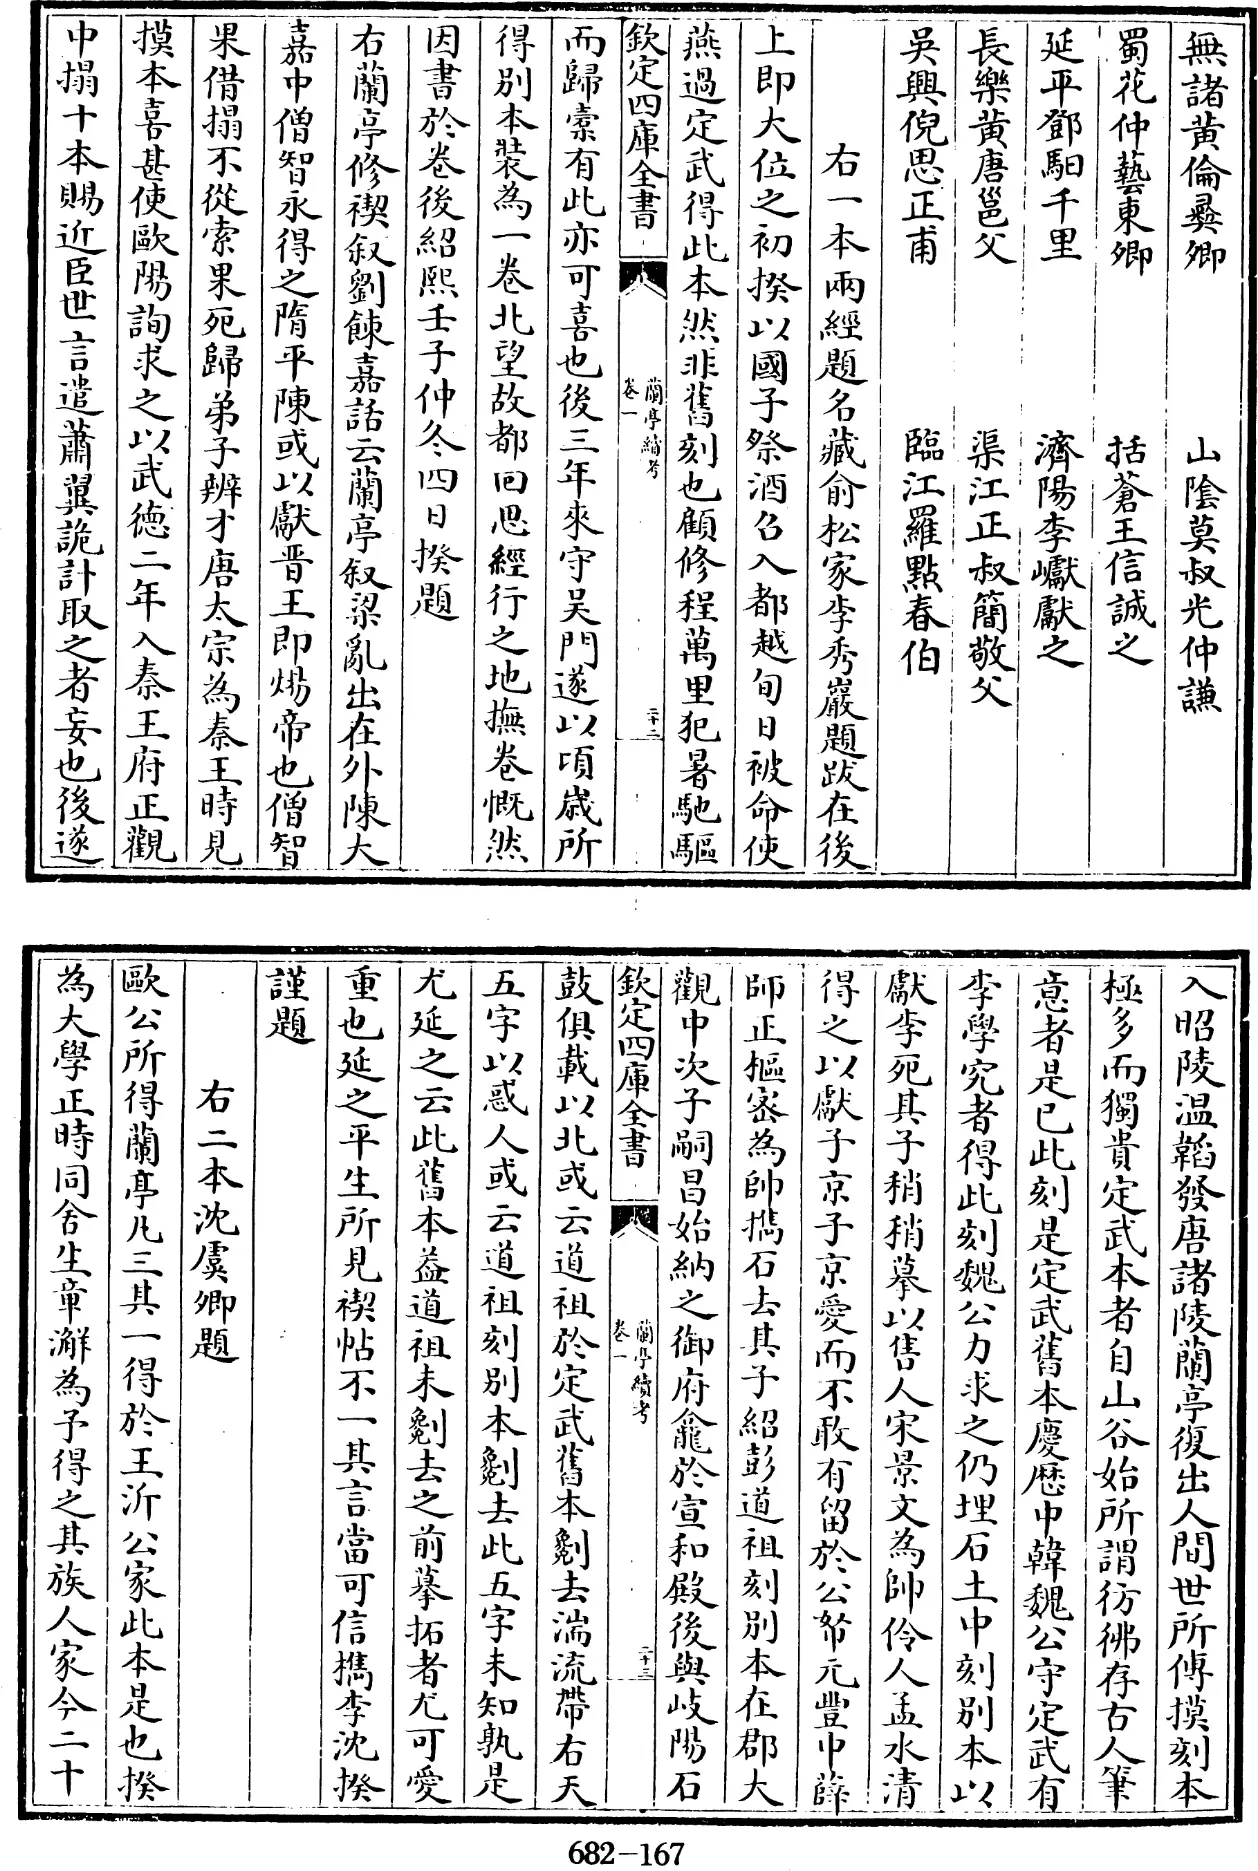 無諸黃倫彞卿　山陰莫叔光仲謙
蜀花仲藝東卿　括蒼王信誠之
延平鄧馹千里　濟陽李巘獻之
長樂黃唐邕父　渠江正叔簡敬父
吳興倪思正甫　臨江羅點春伯
右一本兩經題名藏俞松家李秀巖題跋在後
上即大位之初揆以國子祭酒召入都越旬日被命使
燕過定武得此本然非舊刻也顧修程萬里犯暑馳驅
欽定四庫全書　蘭亭續考卷一　二十二
而歸橐有此亦可喜也後三年來守吳門遂以頃歲所
得別本裝為一卷北望故都回思經行之地撫卷慨然
因書於卷後紹熙壬子仲冬四日揆題
右蘭亭修禊叙劉餗嘉話云蘭亭叙梁亂出在外陳大
嘉中僧智永得之隋平陳或以獻晋王即煬帝也僧智
果借搨不從索果死歸弟子辨才唐太宗為秦王時見
摸本喜甚使歐陽詢求之以武德二年入秦王府正觀
中搨十本賜近臣世言遣蕭翼詭計取之者妄也後遂
入昭陵温韜發唐諸陵蘭亭復出人間世所傳摸刻本
極多而獨貴定武本者自山谷始所謂彷彿存古人筆
意者是已此刻是定武舊本慶厯中韓魏公守定武有
李學究者得此刻魏公力求之仍埋石土中刻別本以
獻李死其子稍稍摹以售人宋景文為帥伶人孟水清
得之以獻子京子京愛而不敢有留於公帑元豐中薛
師正樞密為帥擕石去其子紹彭道祖刻別本在郡大
觀中次子嗣昌始納之御府龕於宣和殿後與岐陽石
欽定四庫全書　蘭亭續考卷一　二十三
鼓俱載以北或云道祖於定武舊本劖去湍流帶右天
五字以惑人或云道祖刻別本劖去此五字未知孰是
尤延之云此舊本益道祖未劖去之前摹拓者尤可愛
重也延之平生所見禊帖不一其言當可信擕李沈揆
謹題
右二本沈虞卿題
歐公所得蘭亭凡三其一得於王沂公家此本是也揆
為大學正時同舍生章澥為予得之其族人家今二十
682-167